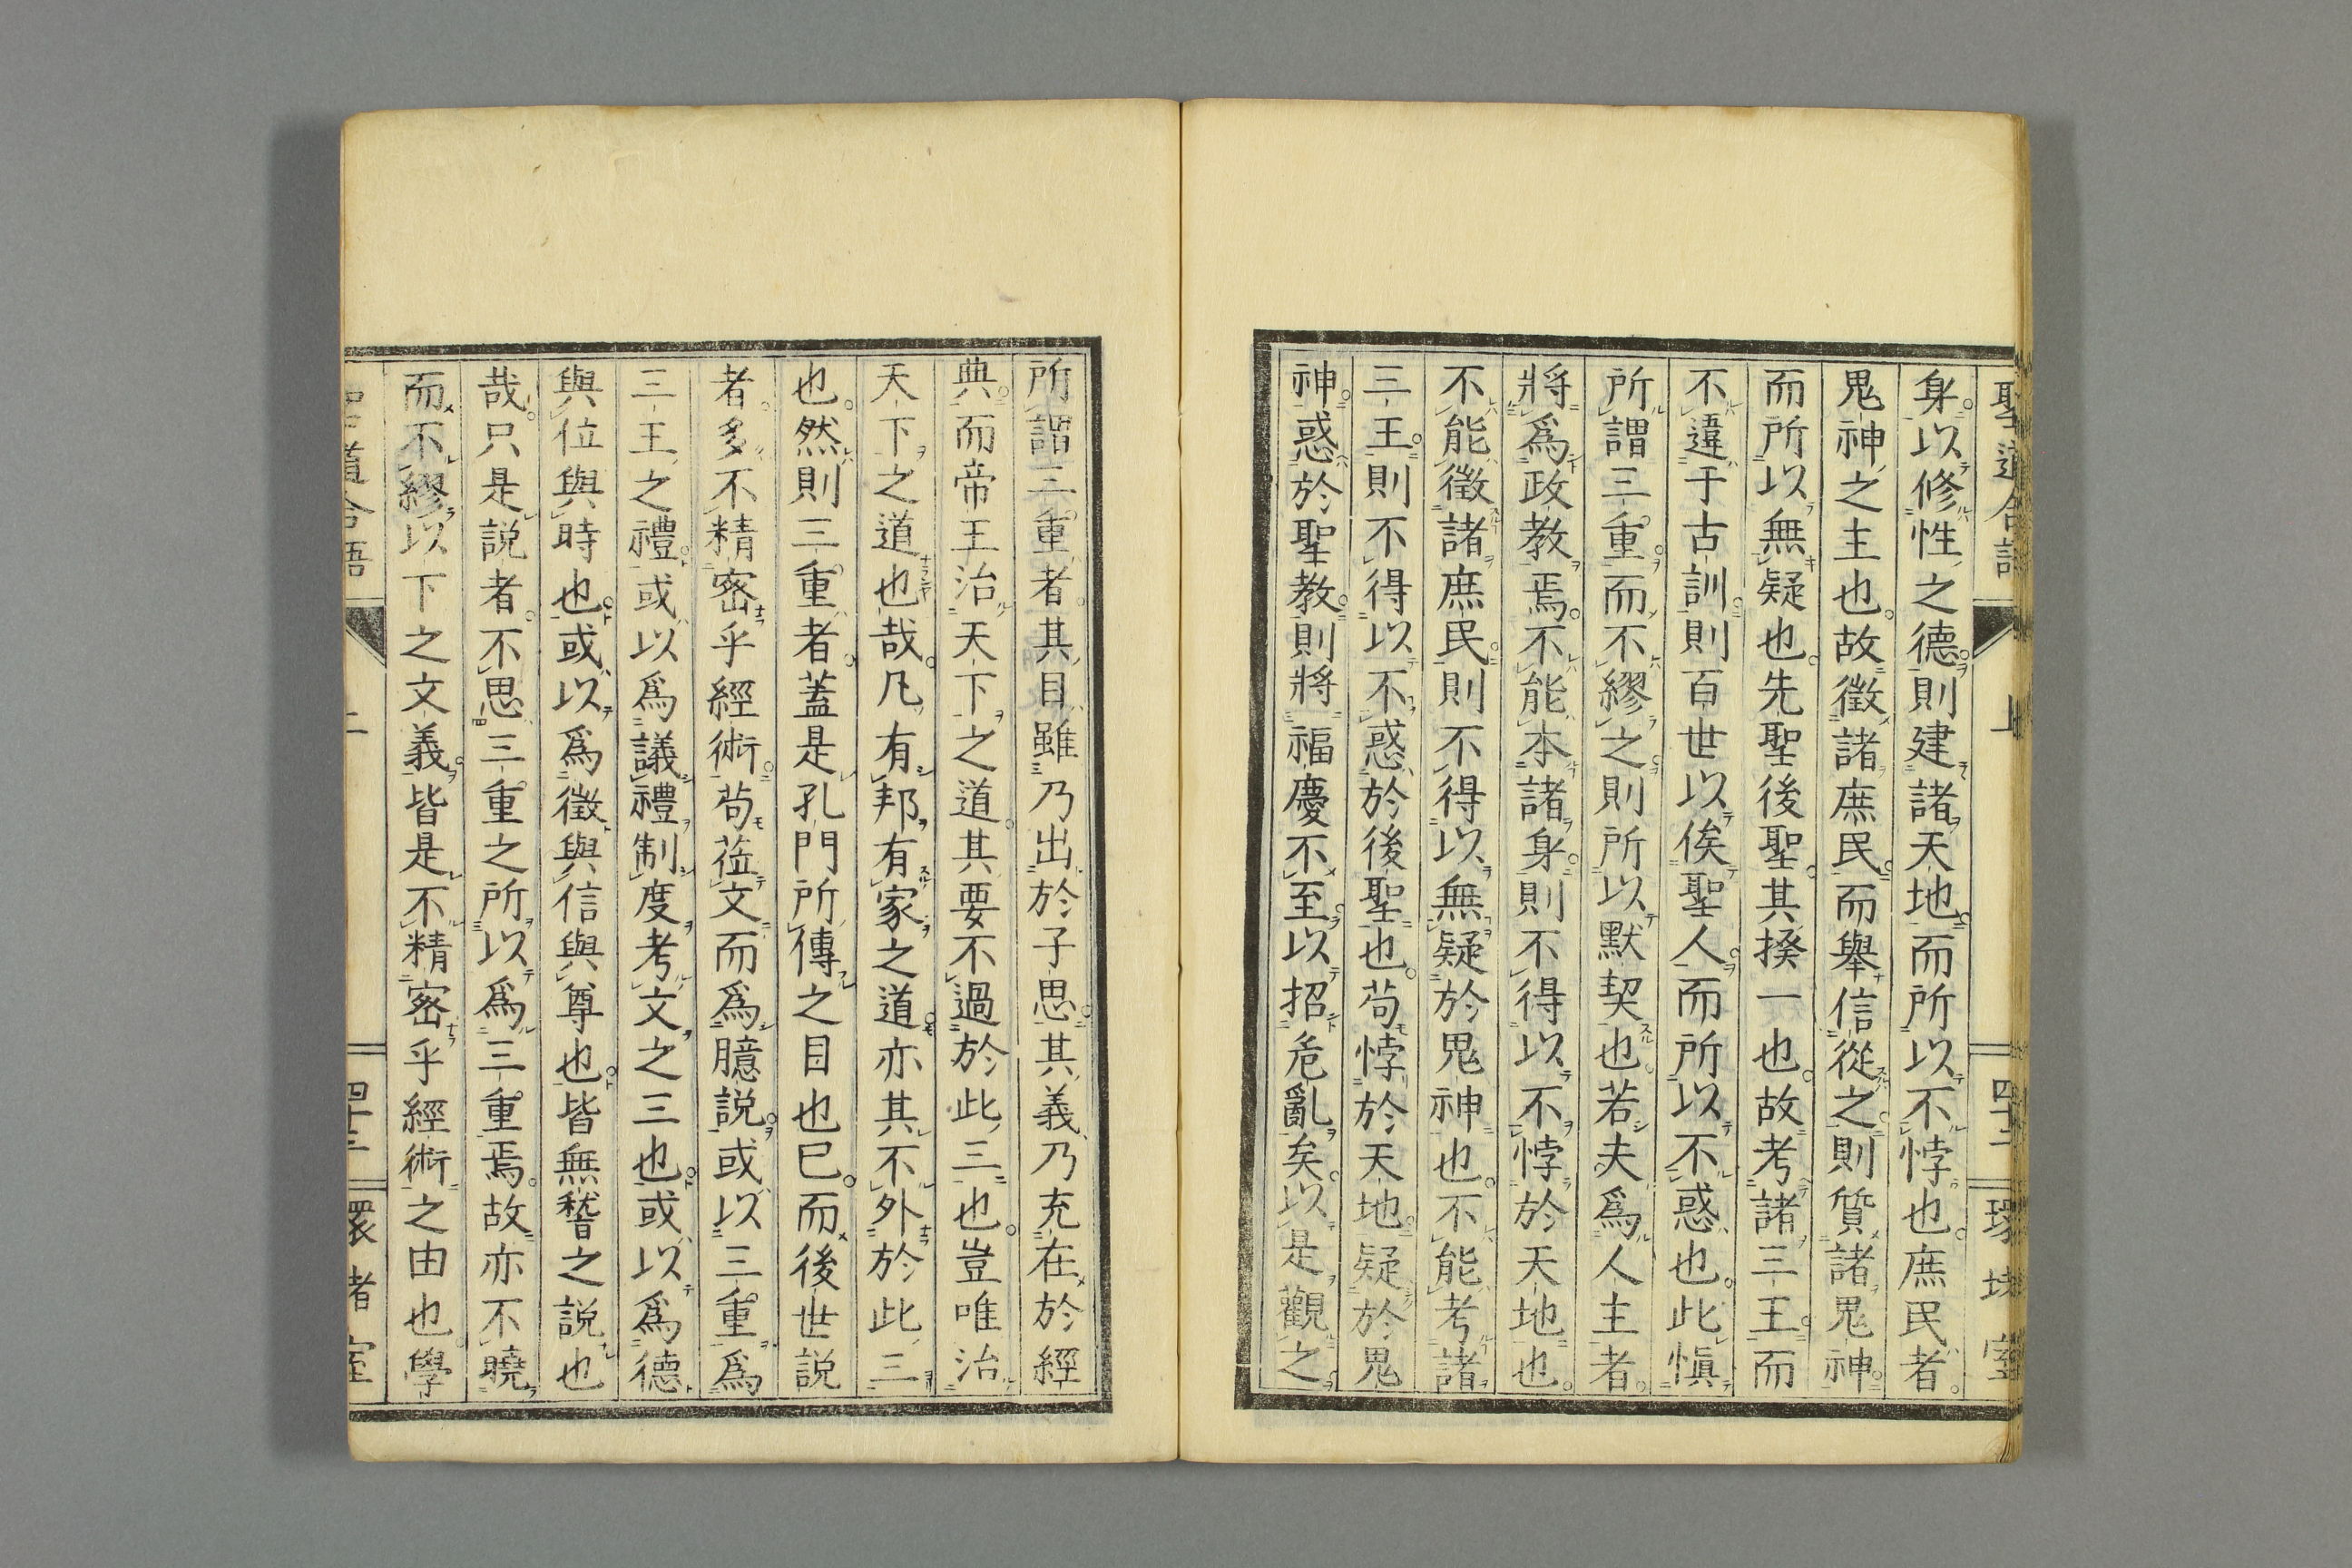 身以修性之德則建諸天地而所以不悖也庶民者
鬼神之主也故徵諸庶民而舉信從之則質諸鬼神
而所以無疑也先聖後聖其揆一也故考諸三王而
不違于古訓則百世以俟聖人而所以不惑也此慎
所謂三重而不繆之則所以默契也若夫爲人主者
將爲政教焉不能本諸身則不得以不悖於天地也
不能徵諸庶民則不得以無疑於鬼神也不能考諸
三王則不得以不惑於後聖也苟悖於天地疑於鬼
神惑於聖教則將福慶不至以招危亂矣以是觀之
所謂三重者其目雖乃出於子思其義乃充在於經
典而帝王治天下之道其要不過於此三也豈唯治
天下之道也哉凡有邦有家之道亦其不外於此三
也然則三重者蓋是孔門所傳之目也已而後世説
者多不精密乎經術苟蒞文而爲臆説或以三重爲
三王之禮或以爲議禮制度考文之三也或以爲德
與位與時也或以爲徵與信與尊也皆無稽之説也
哉只是説者不思三重之所以爲三重焉故亦不曉
而不繆以下之文義皆是不精密乎經術之由也學